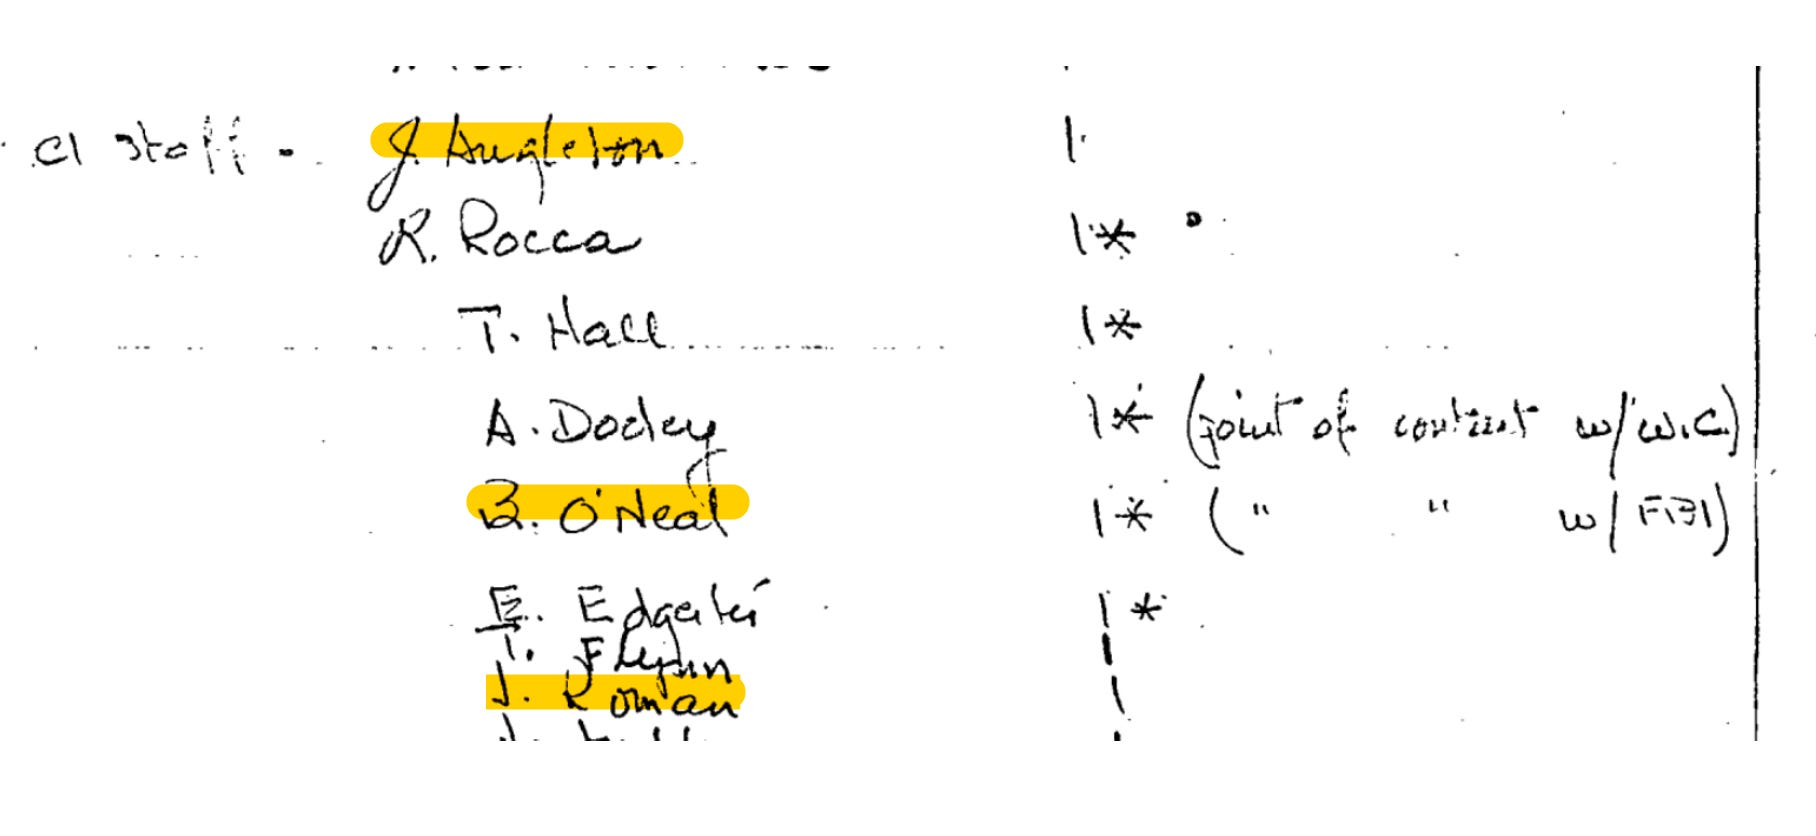 CI Staff - J. Angleton 1
R. Rocca 1*
T. Hall 1*
A. Dooley 1* (point of contact w/ W.C.)
B. O'Neal 1* (" " w/ FBI)
E. 1*
T. Flynn 1
J. Roman 1